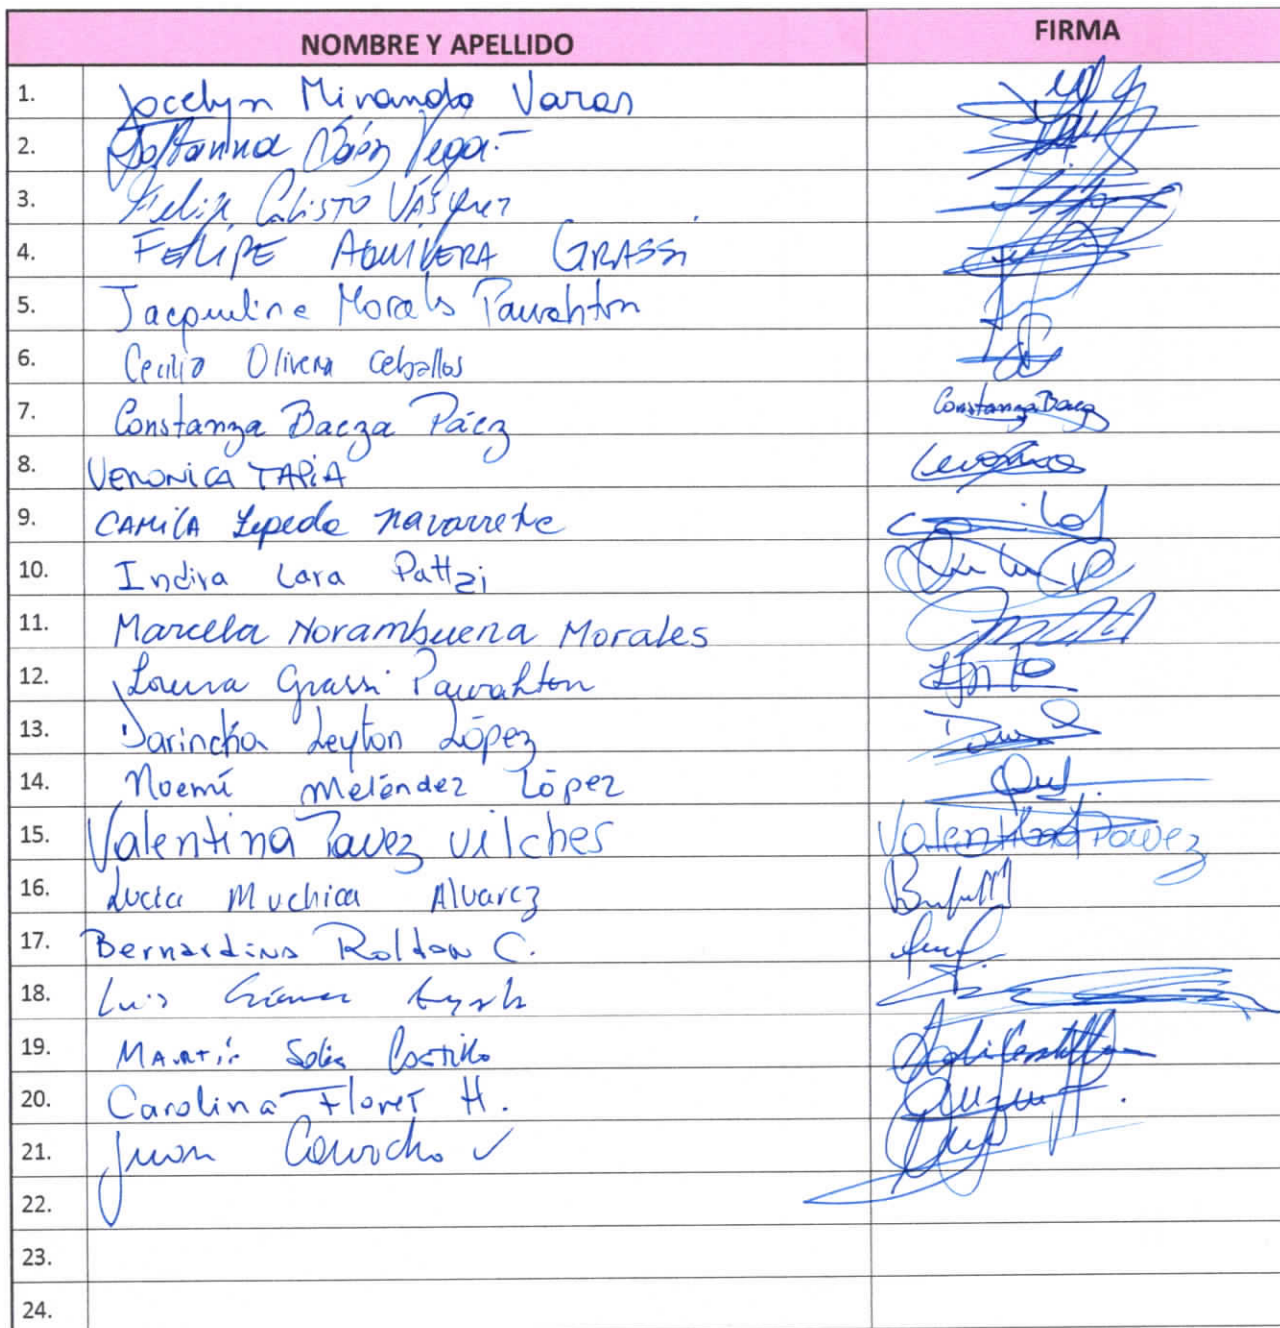 NOMBRE Y APELLIDO FIRMA
1. Jocelyn Miranda Varas
2. Vega
3. Felipe Calisto Vásquez
4. FELIPE AGUILERA GRASSI
5. Jacqueline Morales Pawahton
6. Cecilia Olivera Ceballos
7. Constanza Baeza Páez Constanza Baeza
8. VERONICA TAPIA
9. CAMILA Zepeda Navarrete Camila
10. Indira Lara Pattzi
11. Marcela Norambuena Morales
12. Lorena Grassi Pawahton
13. Darincka Leyton López
14. Noemí Meléndez López
15. Valentina Pavez Vilches Valentina Pavez
16. Lucia Muchica Alvarez
17. Bernardino Roldan C.
18. Luis
19. MARTIN Solis Castillo
20. Carolina Flores H.
21. Juan
22.
23.
24.